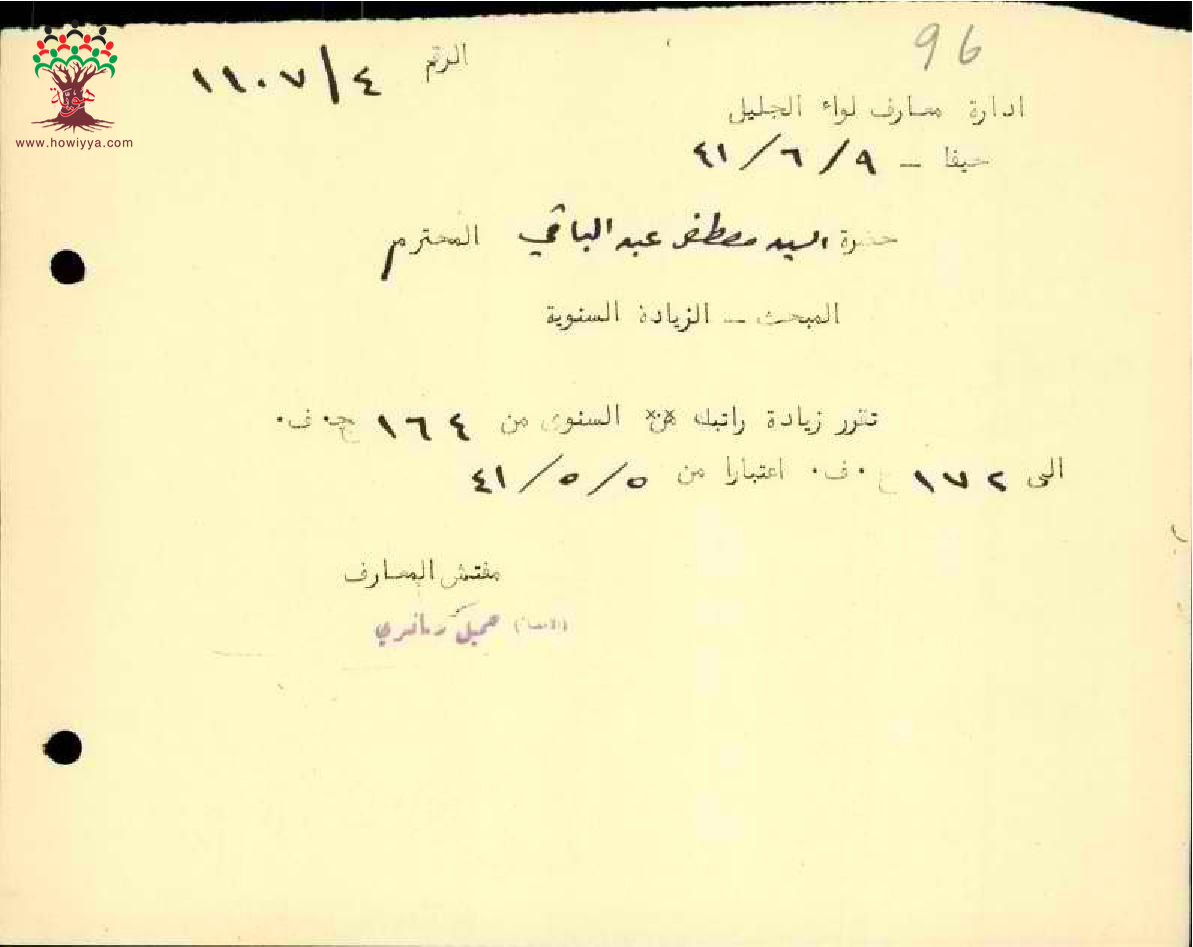 96
الرقم ١١٠٧/٤
ادارة معارف لواء الجليل
حيفا – ٤١/٦/٩
حضرة السيد مصطفى عبد الباقي المحترم
المبحث – الزيادة السنوية
تقرر زيادة راتبك السنوى من ١٦٤ ج٠ف٠
الى ١٧٢ ج٠ف٠ اعتبارا من ٤١/٥/٥
مفتش المعارف
هوية
www.howiyya.com